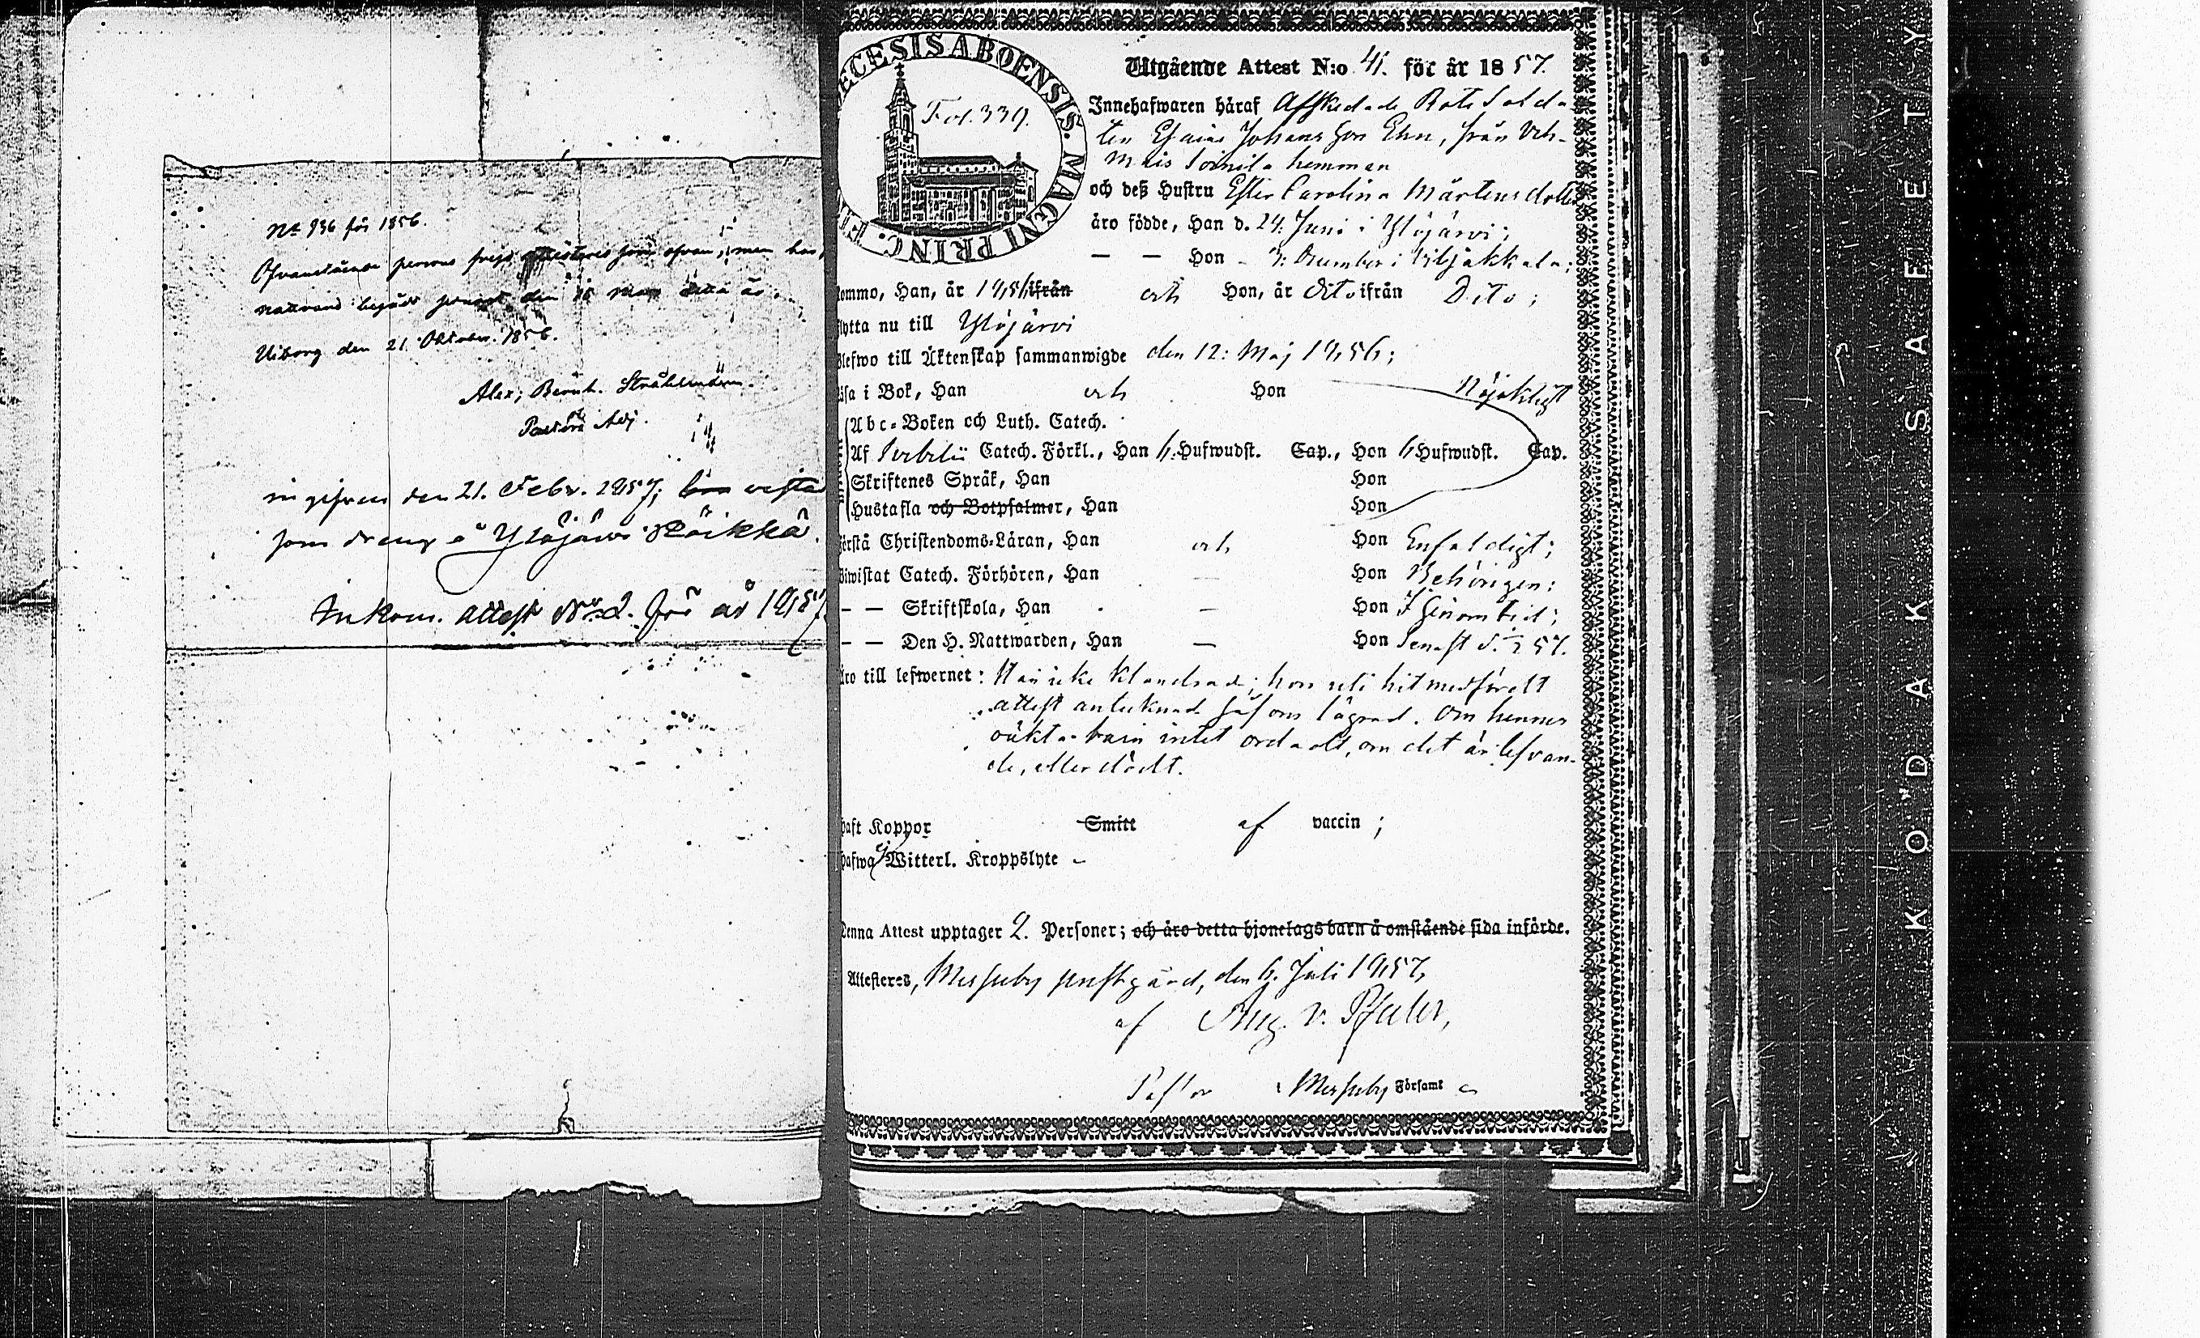 No 936 för 1856.
Ofvanstående person frejd attesteras som ofvan; men har,
nattvard begått senast den 18 Maj detta år.
Wiborg den 21. Oktober. 1856.
Alex; Bernh. Stråhlman.
Pastors Adj.
ingifven den 21. Febr. 1857; vistas
som dreng å Ylöjärvi Räikkä.
Inkom. attest No 2. för år 1857
DIOECESIS ABOENSIS. MAGNI PRINC. FIN
Fol. 339.
Utgående Attest N:o 41. för år 1857.
Innehafwaren håraf Afskedade Rote Solda-
ten Esaias Johansson Ehn, från Veh-
mais hemman
och deß Hustru Ester Carolina Mårtensdotter
äro födde, Han d. 24. Juni i Ylöjärvi;
— — Hon - 3: December i Viljakkala;
kommo, Han, år 1856 ifrån och Hon, år dito ifrån Dito;
flytta nu till Ylöjärvi
Blefwo till Äktenskap sammanwigde den 12: Maj 1856;
läsa i Bok, Han och Hon Nöjaktigt
Abc-Boken och Luth. Catech.
Af Svebelii Catech. Förkl., Han 6. Hufwudst. Cap., Hon 6 Hufwudst. Cap.
Skriftenes Språk, Han Hon
Hustafla och Botpsalmer, Han Hon
förstå Christendoms-Läran, Han och Hon Enfaldigt;
Biwistat Catech. Förhören, Han — Hon Behörigen;
— — Skriftskola, Han — Hon
— — Den H. Nattwarden, Han — Hon Senast d. 57.
äro till lefwernet: Han icke klandrad; hon uti hitmedfördt
attest antecknad såsom lägrad. Om hennes
oäkta barn intet ordadt, om det är lefvan-
de, eller dödt.
haft Koppor Smitt af vaccin;
hafwa ej Witterl. Kroppslyte -
Denna Attest upptager 2. Personer; och äro detta hjonelags barn å omstående sida införde.
Attesteras, Messuby prestgård, den 6. Juli 1857,
af Aug. v. Pfaler,
Pastor i Messuby Församl
KODAK SAFETY